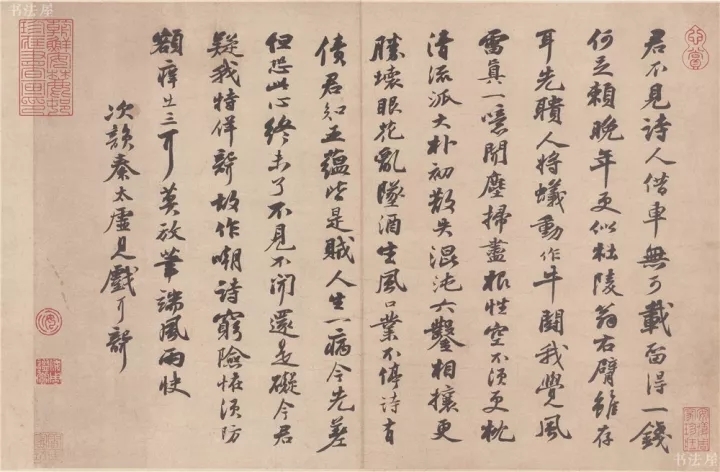 书法屋
君不見詩人借車無可載留得一錢
何足賴晚年更似杜陵翁右臂雖存
耳先聵人將蟻動作牛鬬我覺風
雷真一噫聞塵掃盡根性空不須更枕
清流派大朴初散失混沌六鑿相攘更
勝壞眼花亂墜酒生風口業不停詩有
債君知五蘊皆是賊人生一病今先差
但恐此心終未了不見不聞還是礙今君
疑我特佯聾故作嘲詩窮險怪須防
額痒出三耳莫放筆端風雨快
次韻秦太虛見戲耳聾
书法屋